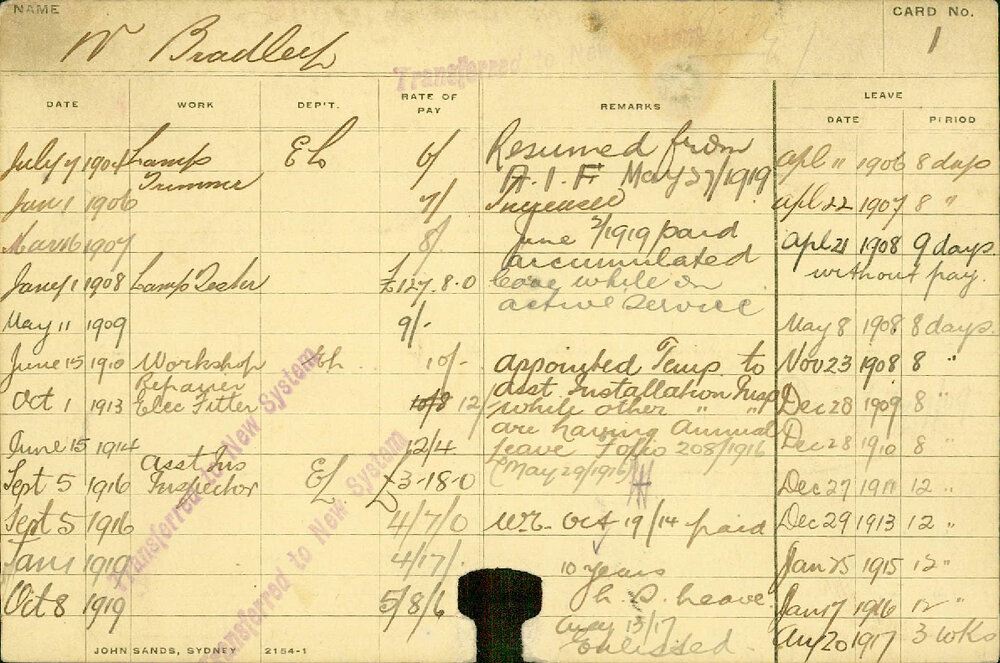 NAME
W Bradley
CARD No.
1
Transferred to New System
DATE WORK DEP'T. RATE OF PAY REMARKS LEAVE
DATE PERIOD
July 7 1904 Lamp Trimmer EL 6/
Jan 1 1906 7/
Mar 16 1907 8/
Jany 1 1908 Lamp Tester £127.8.0
May 11 1909 9/-
June 15 1910 Workshop Repairer 10/-
Oct 1 1913 Elec Fitter 10/8 12/
June 15 1914 12/4
Sept 5 1916 Asst Ins Inspector EL £3-18-0
Sept 5 1916 4/7/0
Jan 1 1919 4/17/-
Oct 8 1919 5/8/6
Resumed from
A.I.F May 27/1919
Increased
June 2/1919 paid
accumulated
leave while on
active service
appointed Temp to
asst Installation Insp
while other " "
are having Annual
leave Folio 208/1916
(May 29/1916)
Oct 19/14 paid
10 years
L. S. Leave
Aug 13/17
Enlisted.
Apl 11 1906 8 days
Apl 22 1907 8 "
Apl 21 1908 9 days.
without pay.
May 8 1908 8 days.
Nov 23 1908 8 "
Dec 28 1909 8 "
Dec 28 1910 8 "
Dec 27 1911 12 "
Dec 29 1913 12 "
Jan 25 1915 12 "
Jan 17 1916 12 "
20 1917 3 wks
Transferred to New System
Transferred to New System
JOHN SANDS, SYDNEY 2154-1